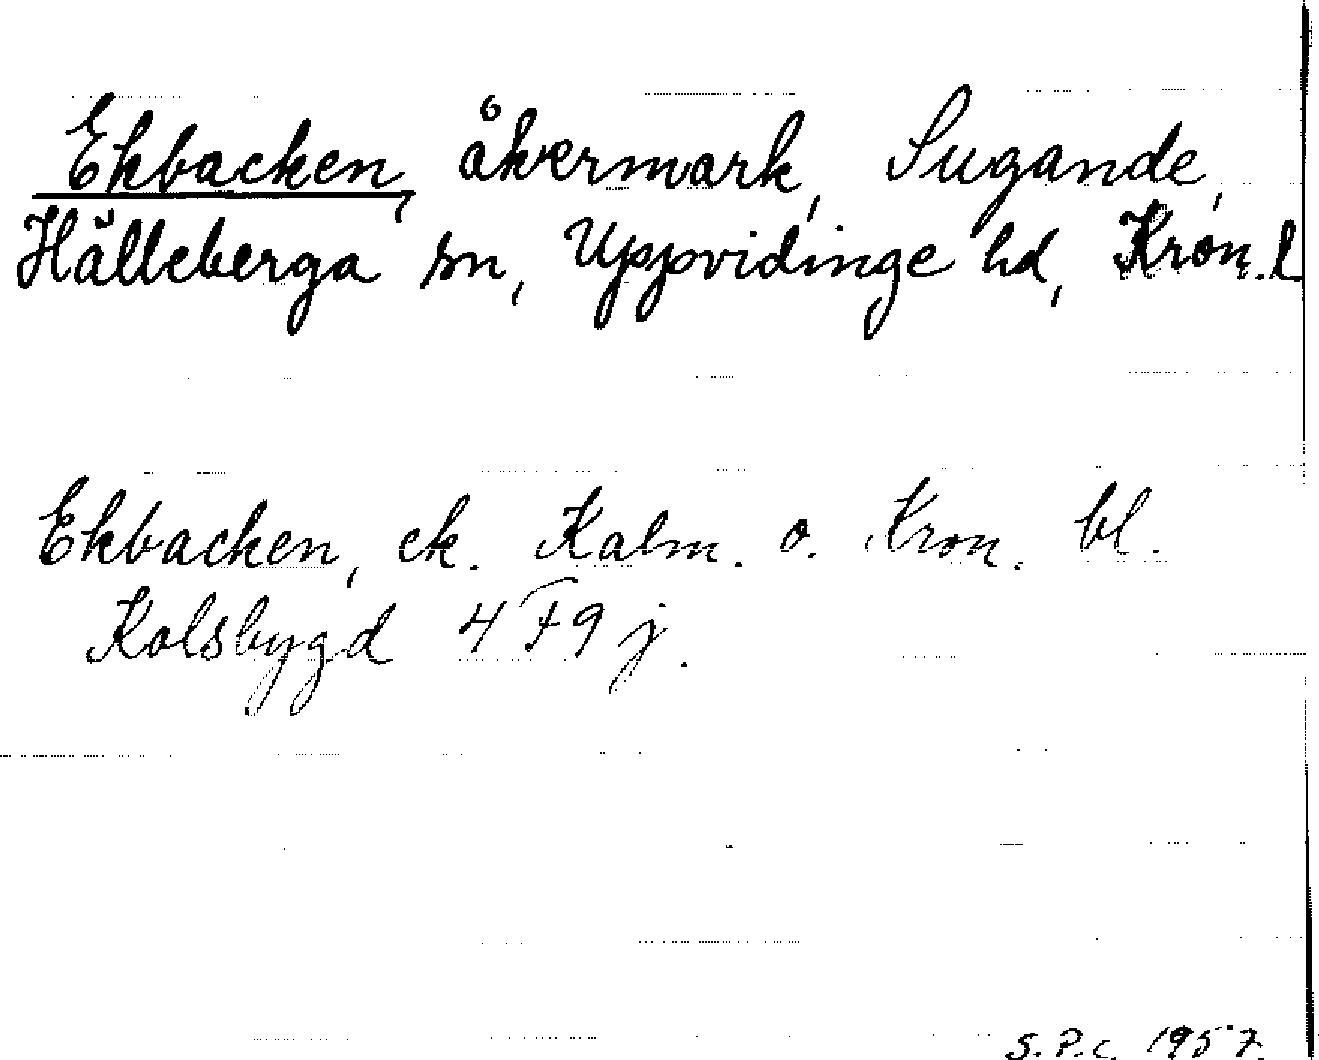 Ekbacken, åkermark, Sugande,
Hälleberga sn, Uppvidinge hd, Kron. l
Ekbacken, ek. Kalm. o. Kron. bl.
Kolsbygd 4 F9 j.
S.P.c. 1957.